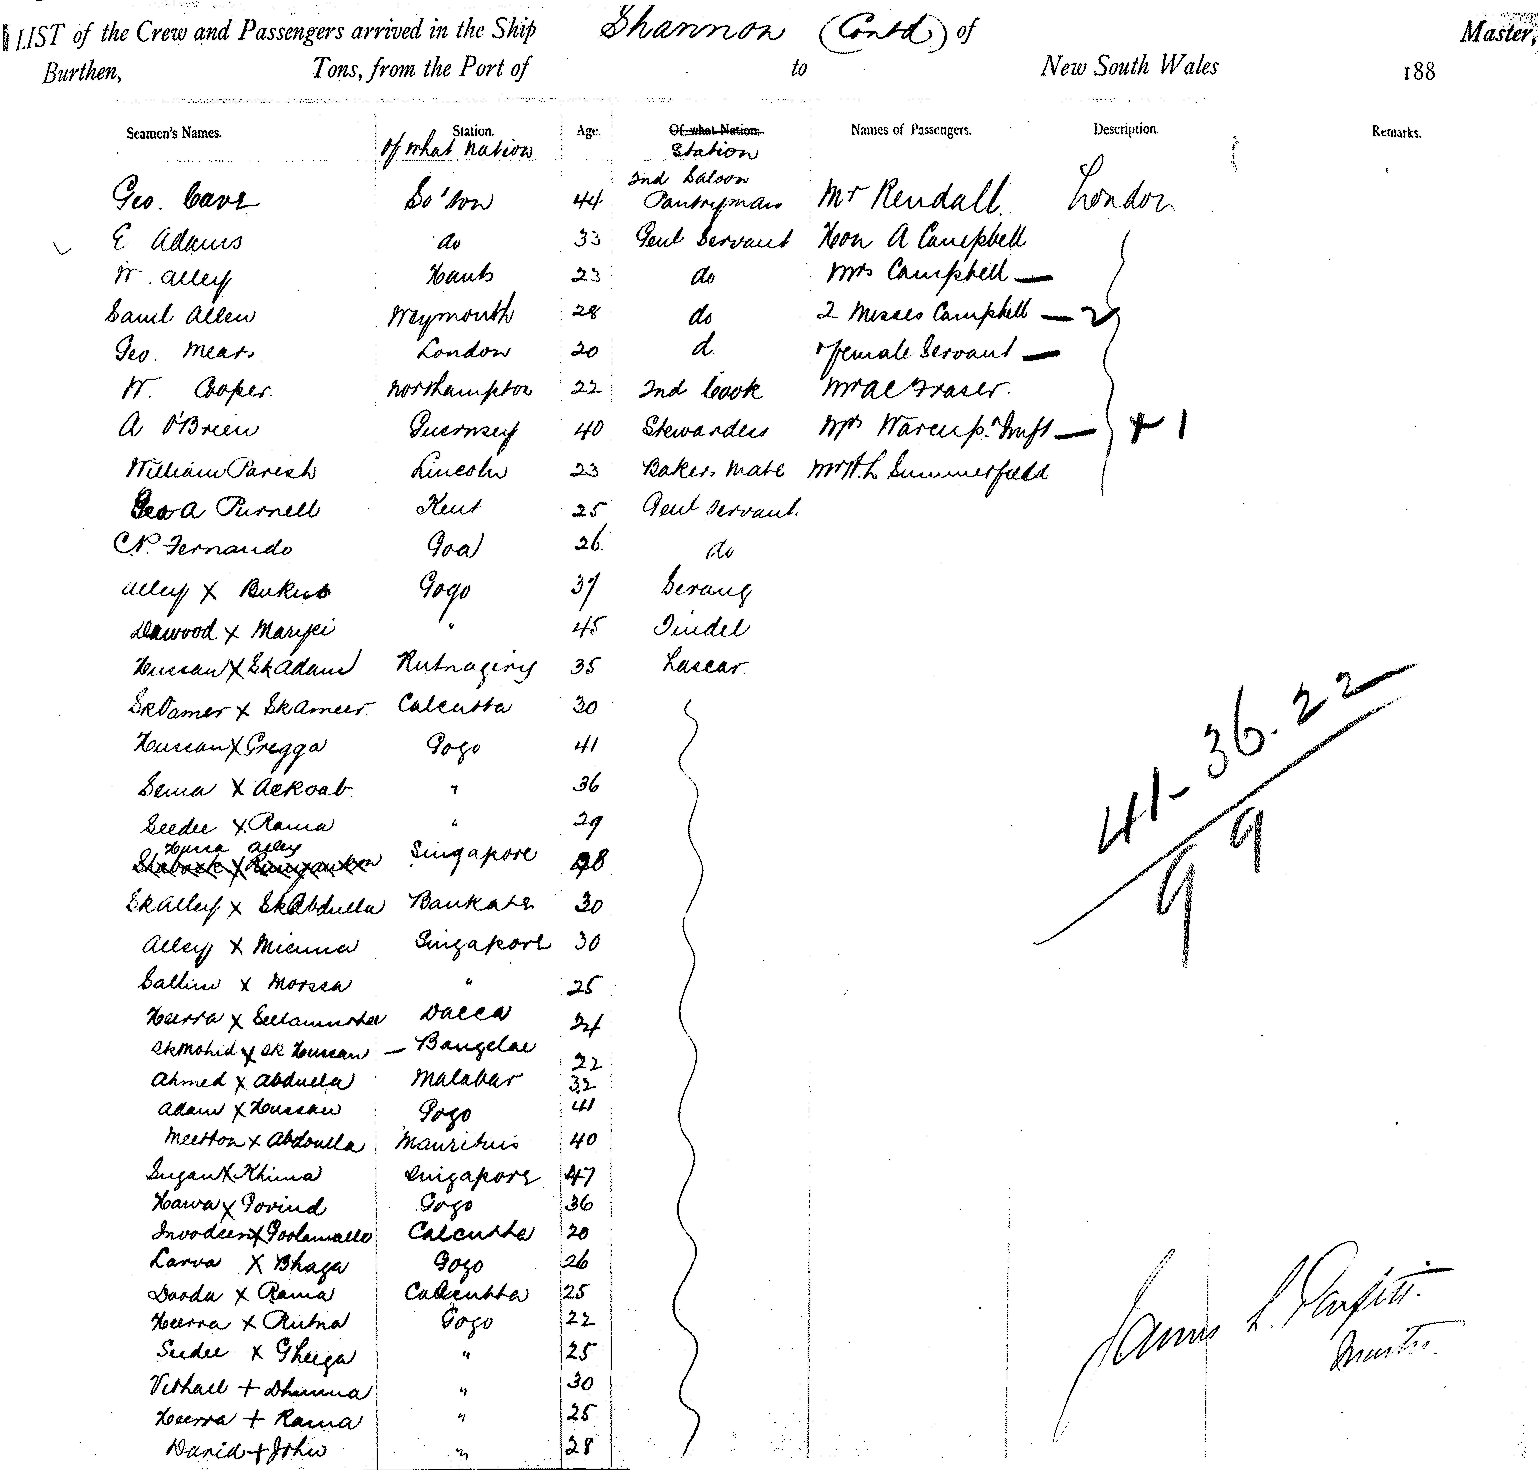 LIST of the Crew and Passengers arrived in the Ship Shannon (Contd) of Master,
Burthen, Tons, from the Port of to New South Wales 188
Seamen's Names. Station. Age. Of what Nation. Names of Passengers. Description. Remarks.
Of what nation Station
Geo. Cave So'ton 44 2nd Saloon Pantryman Mr Rendall London
E Adams do 33 Genl Servant Hon A Campbell
W. Alley Hants 23 do Mrs Campbell —
Saml Allen Weymouth 28 do 2 Misses Campbell — 2
Geo. Mears London 20 d female Servant —
W. Cooper Northampton 22 2nd Cook Mr A C Fraser.
A O'Brien Guernsey 40 Stewardess Mrs — + 1
William Parish Lincoln 23 Bakers Mate Mr H. L Summerfield
Geo A Purnell Kent 25 Genl Servant.
C.N. Fernando Goa 26 do
Alley X Buksh Gogo 37 Serang
Dawood X 45 Tindel
Hussan X Sk Adam Rutnagiry 35 Lascar
X Sk Ameer Calcutta 30
Hussan X Gregga Gogo 41
Sema X Ackoab " 36
Seedee X Rama " 29
Alley
Singapore 28
Sk Alley X Sk Abdulla 30
Alley X Singapore 30
Sallim X Morsea " 25
Heerra X Dacca 24
Sk Mohid X Sk Hussan — 22
Ahmed X Abdulla Malabar 32
Adam X Hussan Gogo 41
X Abdoulla Mauritius 40
X Khima Singapore 47
Hawa X Govind Gogo 36
X Calcutta 20
Larva X Bhaga Gogo 26
Dooda X Rama Calcutta 25
Heerra X Rutna Gogo 22
Seedee X " 25
Vithall + Dhamna " 30
Heerra + Rama " 25
David + John " 28
41-36.22
99
James L. Parfitt.
Master.